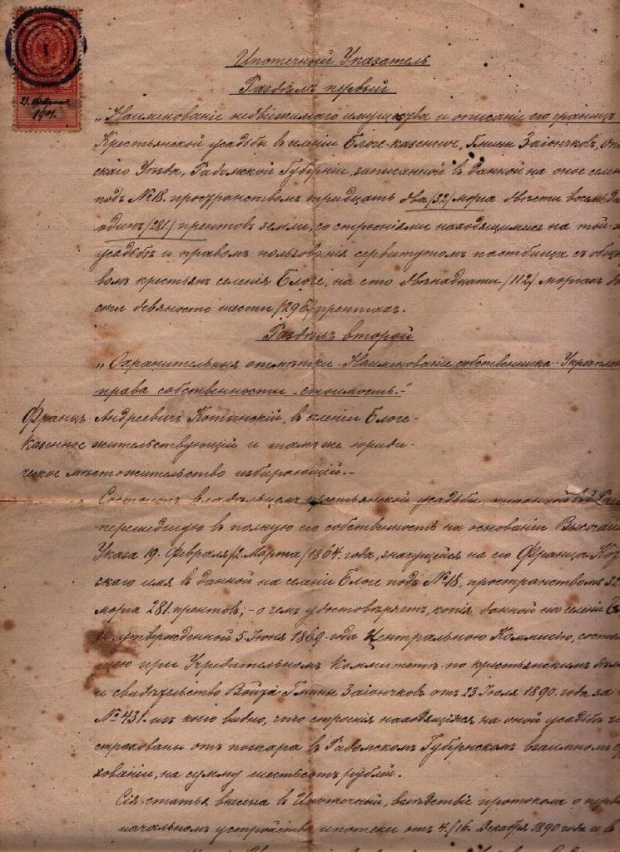 21 февраля
1901.
Ипотечный Указатель
Раздѣлъ первый
"Наименованіе недвижимаго имущества и описаніе его границъ
Крестьянской усадьбы въ имѣніи Блоге-казенное, Гмины Заіончковъ, Опо
скаго Уѣзда, Радомской Губерніи, записанной въ данной на оное селеніе
подъ №18. пространствомъ тридцать два /32/ морга двѣсти восемьдесятъ
одинъ /281/ прентовъ земли, со строеніями находящимися на той
усадьбѣ и правомъ пользованія сервитутомъ пастбища съ общес
вомъ крестьянъ селенія Блоге, на сто двѣнадцати /112/ моргахъ
сти девяносто шести /296/ прентахъ.
Раздѣлъ второй
"Охранительныя отмѣтки - Наименованіе собственника - Укрѣплен
права собственности - стоимость. -"
Францъ Андреевичъ Котынскій, въ имѣніи Блоге-
Казенное жительствующій и тамъ же юриди-
ческое мѣстожительство избирающій. -
Состоитъ владѣльцемъ крестьянской усадьбы описанной въ I Раз
перешедшую въ полную его собственность на основаніи Высочай
Указа 19. Февраля/2. Марта/1864. года, значущійся на его Франца Кот
скаго имя въ данной на селеніе Блоге подъ №18. пространствомъ 32
морга 281. прентовъ; - о чемъ удостовѣряетъ, копія данной на селеніе
утвержденной 5 Іюня 1869. года Центральною Коммисіею, состо
щею при Учредительномъ Комитетѣ по крестьянскимъ дѣл
и свидѣтельство Войта Гмины Заіончковъ отъ 23 Іюля 1890. года за
№431. изъ коего видно, что строенія находящіяся на оной усадьбѣ
страхованы отъ пожара въ Радомскомъ Губернскомъ взаимномъ
хованіи, на сумму шестьсотъ рублей.
Сія статья внесена въ Ипотечный, вслѣдствіе протокола о перво
начальномъ устройствѣ ипотеки отъ 4./16. Декабря 1890 года и